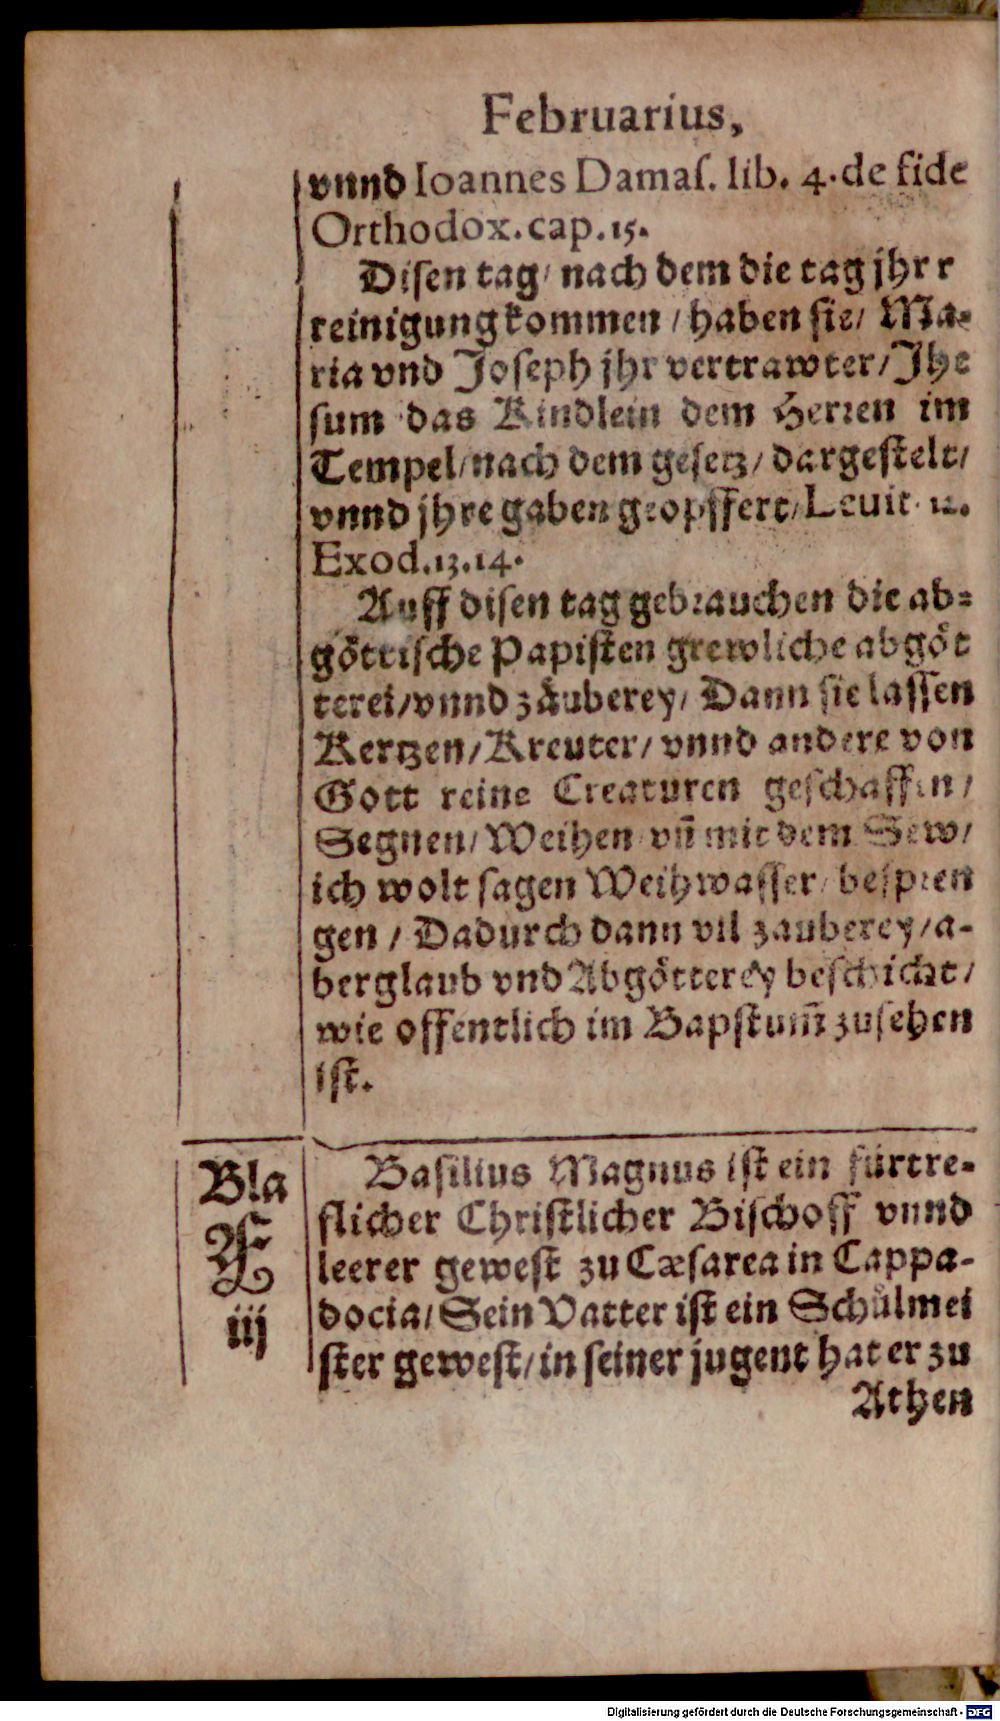 Februarius,
vnnd Ioannes Damaſ. lib. 4. de fide
Orthodox. cap. 15.
Diſen tag / nach dem die tag jhr r
reinigung kommen / haben ſie / Ma-
ria vnd Joſeph jhr vertrawter / Jhe
ſum das Kindlein dem Herren im
Tempel / nach dem geſetz / dargeſtelt /
vnnd jhre gaben geopffert / Leuit. 12.
Exod. 13. 14.
Auff diſen tag gebrauchen die ab-
göttiſche Papiſten grewliche abgöt
terei / vnnd zäuberey / Dann ſie laſſen
Kertzen / Kreuter / vnnd andere von
Gott reine Creaturen geſchaffen /
Segnen / Weihen vñ mit dem Sew /
ich wolt ſagen Weihwaſſer / beſpren
gen / Dadurch dann vil zauberey / a-
berglaub vnd Abgötterey beſchicht /
wie offentlich im Bapſtum̃ zuſehen
iſt.
Bla
F
iij
Baſilius Magnus iſt ein fürtre-
flicher Chriſtlicher Biſchoff vnnd
leerer geweſt zu Cæſarea in Cappa-
docia / Sein Vatter iſt ein Schůlmei
ſter geweſt / in ſeiner jugent hat er zu
Athen
Digitalisierung gefördert durch die Deutsche Forschungsgemeinschaft - DFG